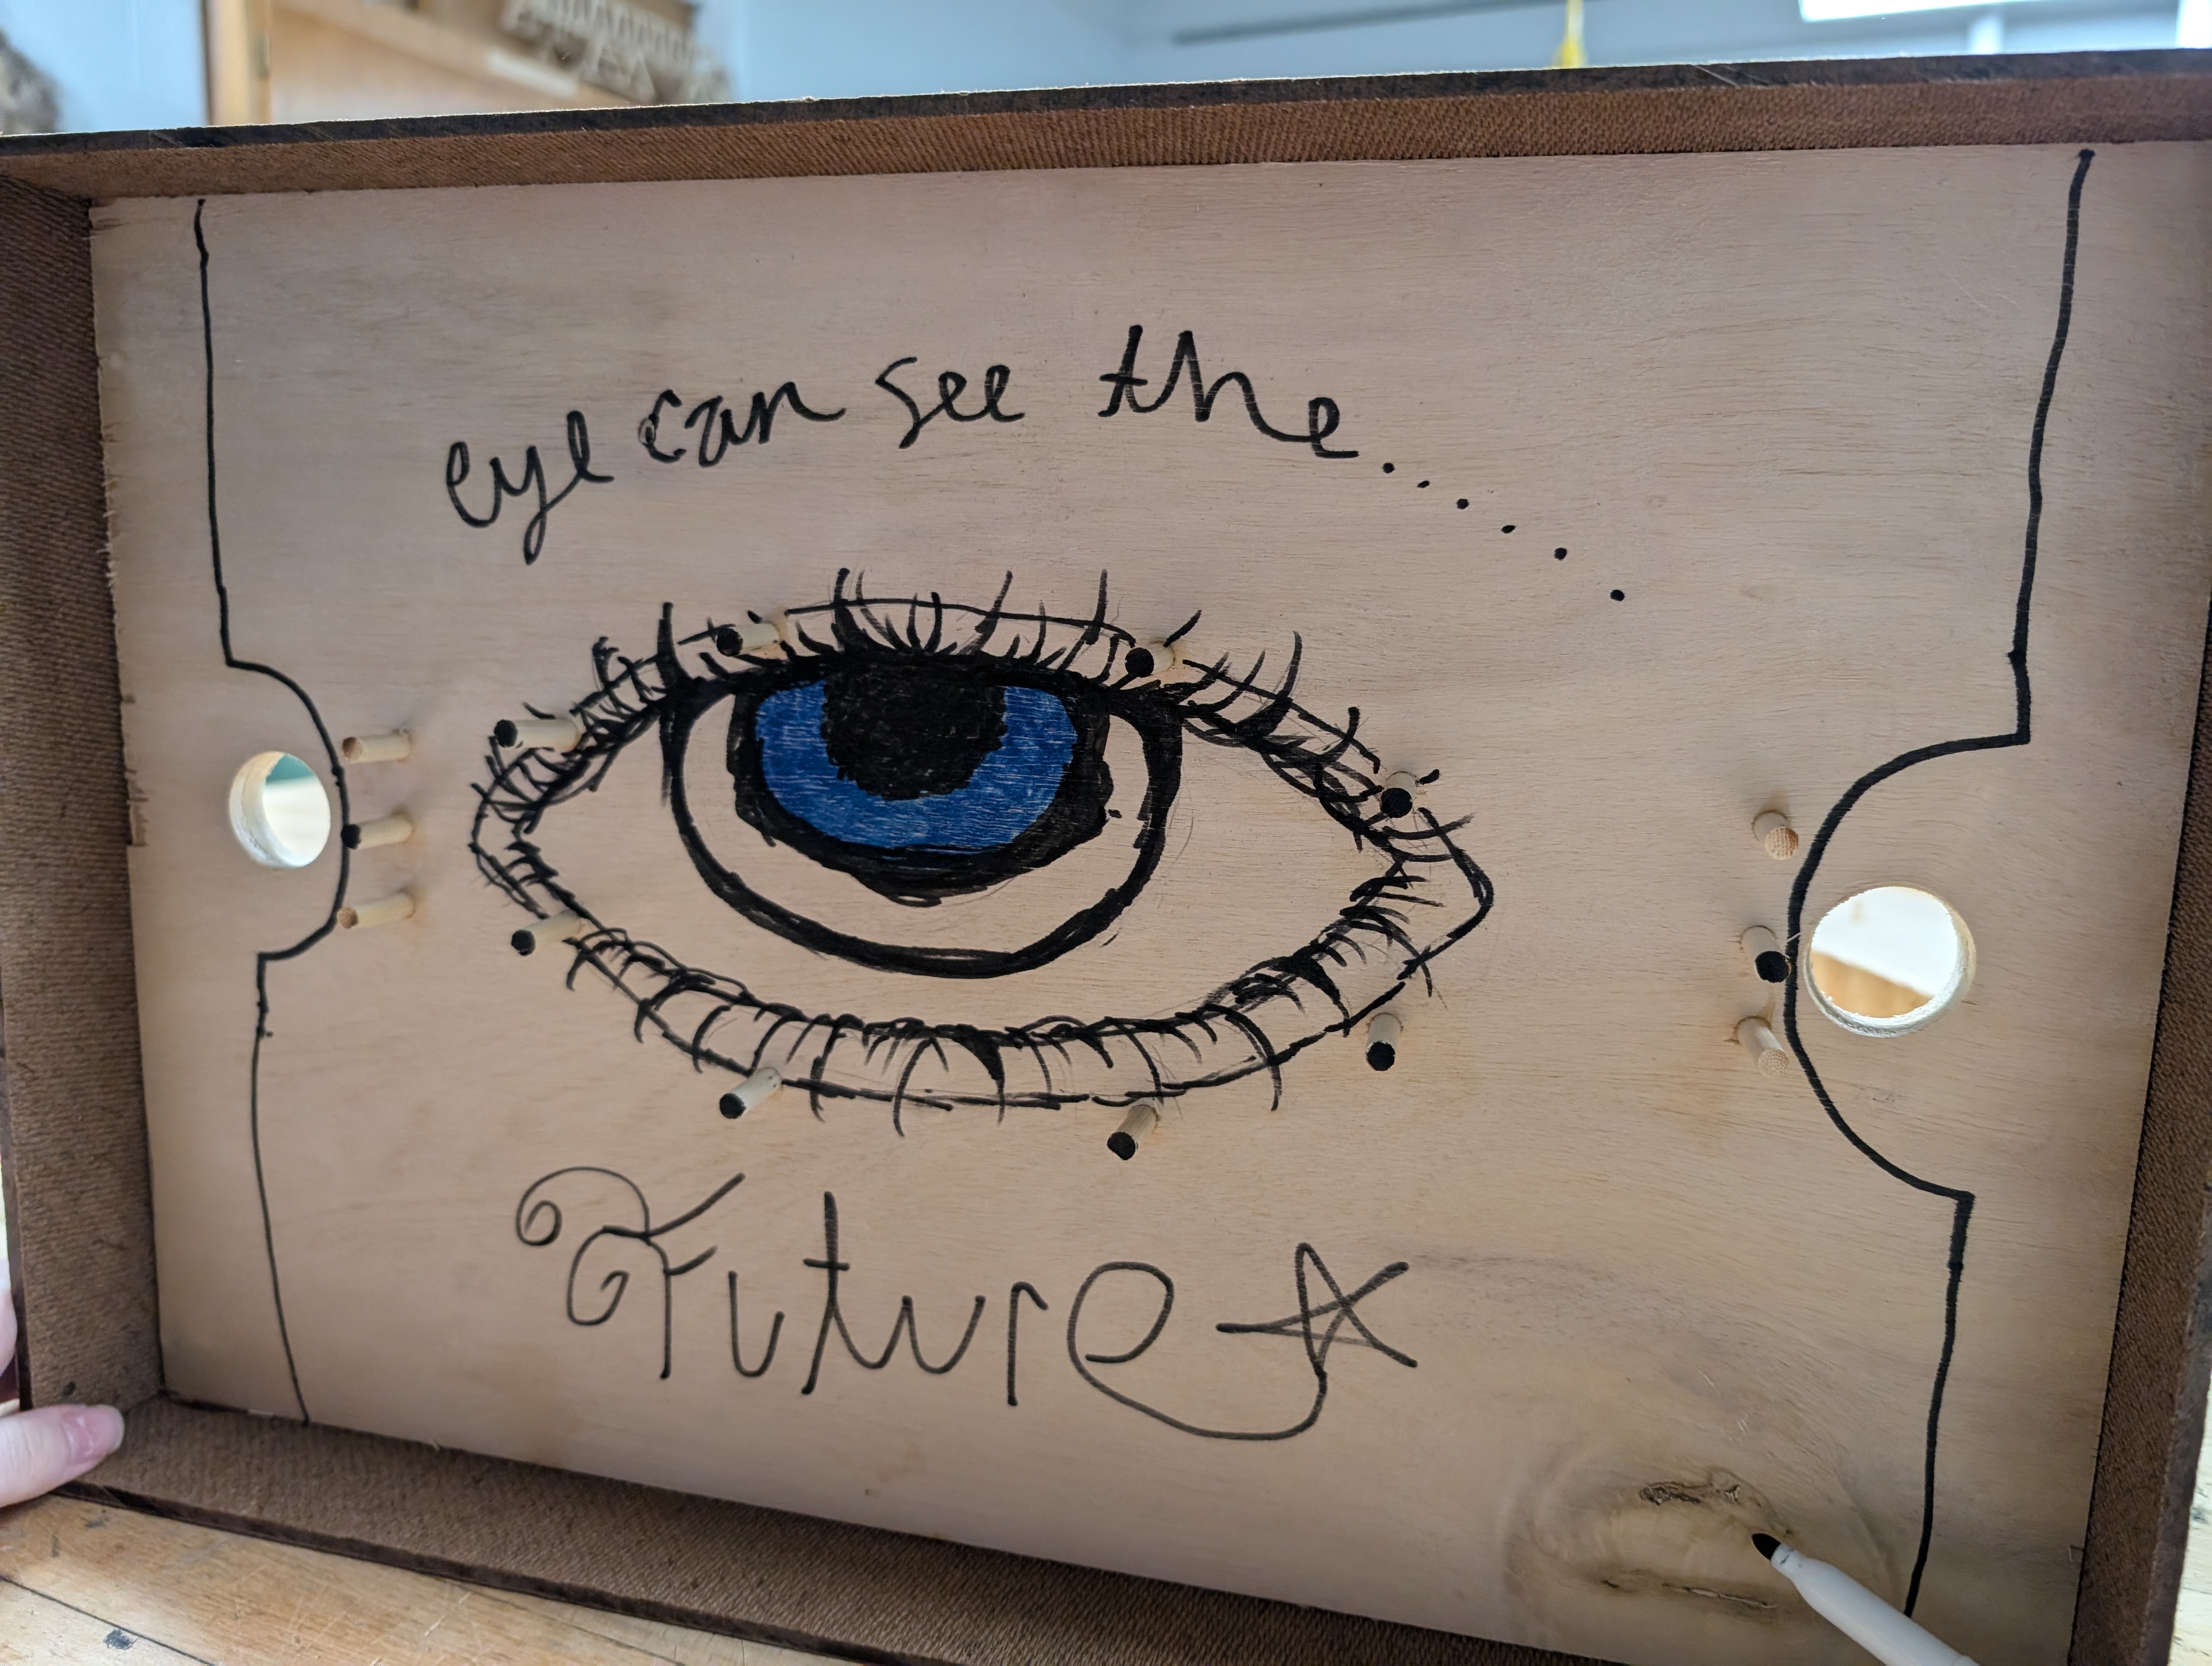 eye can see the......
Future